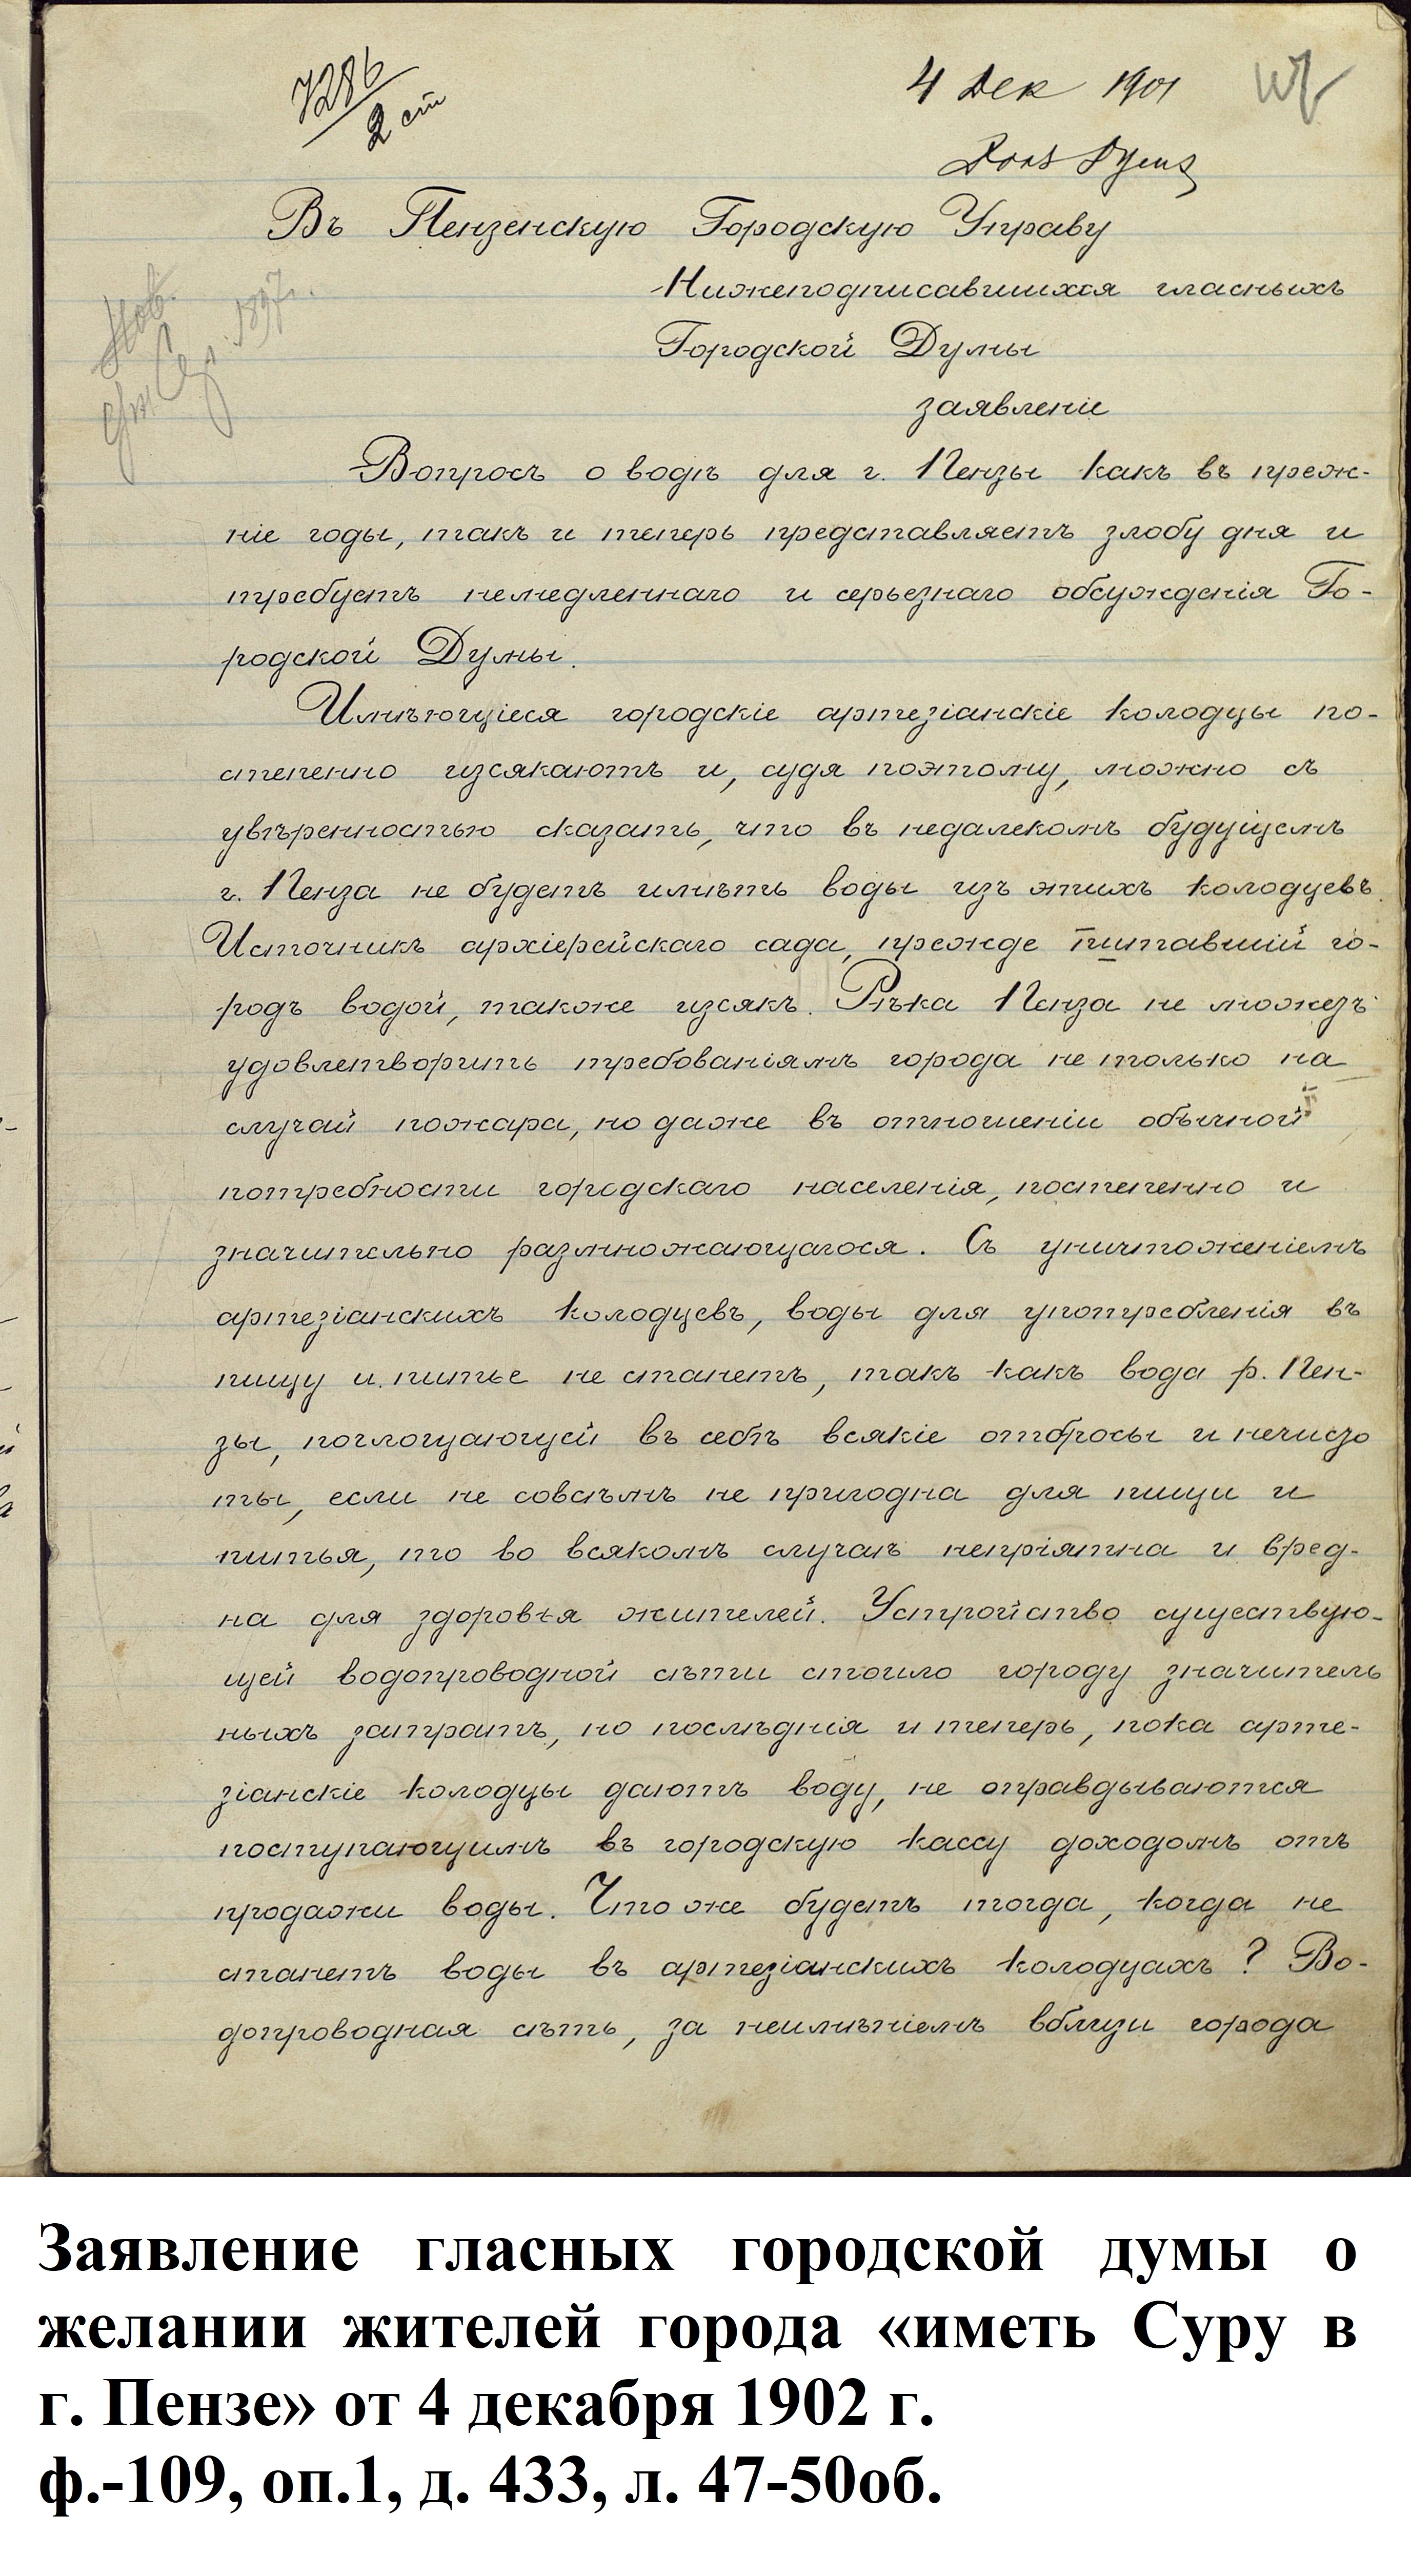 7286
2 ст
4 Дек 1901
Въ Пензенскую Городскую Управу
Нижеподписавшихся гласныхъ
Городской Думы
заявленіе
Вопросъ о водѣ для г. Пензы какъ въ преж-
ніе годы, такъ и теперь представляетъ злобу дня и
требуетъ немедленнаго и серьезнаго обсужденія Го-
родской Думы.
Имѣющіеся городскіе артезіанскіе колодцы по-
степенно изсякаютъ и, судя поэтому, можно съ
увѣренностью сказать, что въ недалекомъ будущемъ
г. Пенза не будетъ имѣть воды изъ этихъ колодцевъ.
Источникъ архіерейскаго сада, прежде питавшій го-
родъ водой, также изсякъ. Рѣка Пенза не можетъ
удовлетворить требованіямъ города не только на
случай пожара, но даже въ отношеніи обычной
потребности городскаго населенія, постепенно и
значительно размножающагося. Съ уничтоженіемъ
артезіанскихъ колодцевъ, воды для употребленія въ
пищу и питье не станетъ, такъ какъ вода р. Пен-
зы, поглощающей въ себѣ всякіе отбросы и нечисто
ты, если не совсѣмъ не пригодна для пищи и
питья, то во всякомъ случаѣ непріятна и вред-
на для здоровья жителей. Устройство существую-
щей водопроводной сѣти стоило городу значитель
ныхъ затратъ, но послѣднія и теперь, пока арте-
зіанскіе колодцы даютъ воду, не оправдываются
поступающимъ въ городскую кассу доходомъ отъ
продажи воды. Что же будетъ тогда, когда не
станетъ воды въ артезіанскихъ колодцахъ? Во-
допроводная сѣть, за неимѣніемъ вблизи города
Заявление гласных городской думы о
желании жителей города «иметь Суру в
г. Пензе» от 4 декабря 1902 г.
ф.-109, оп.1, д. 433, л. 47-50об.